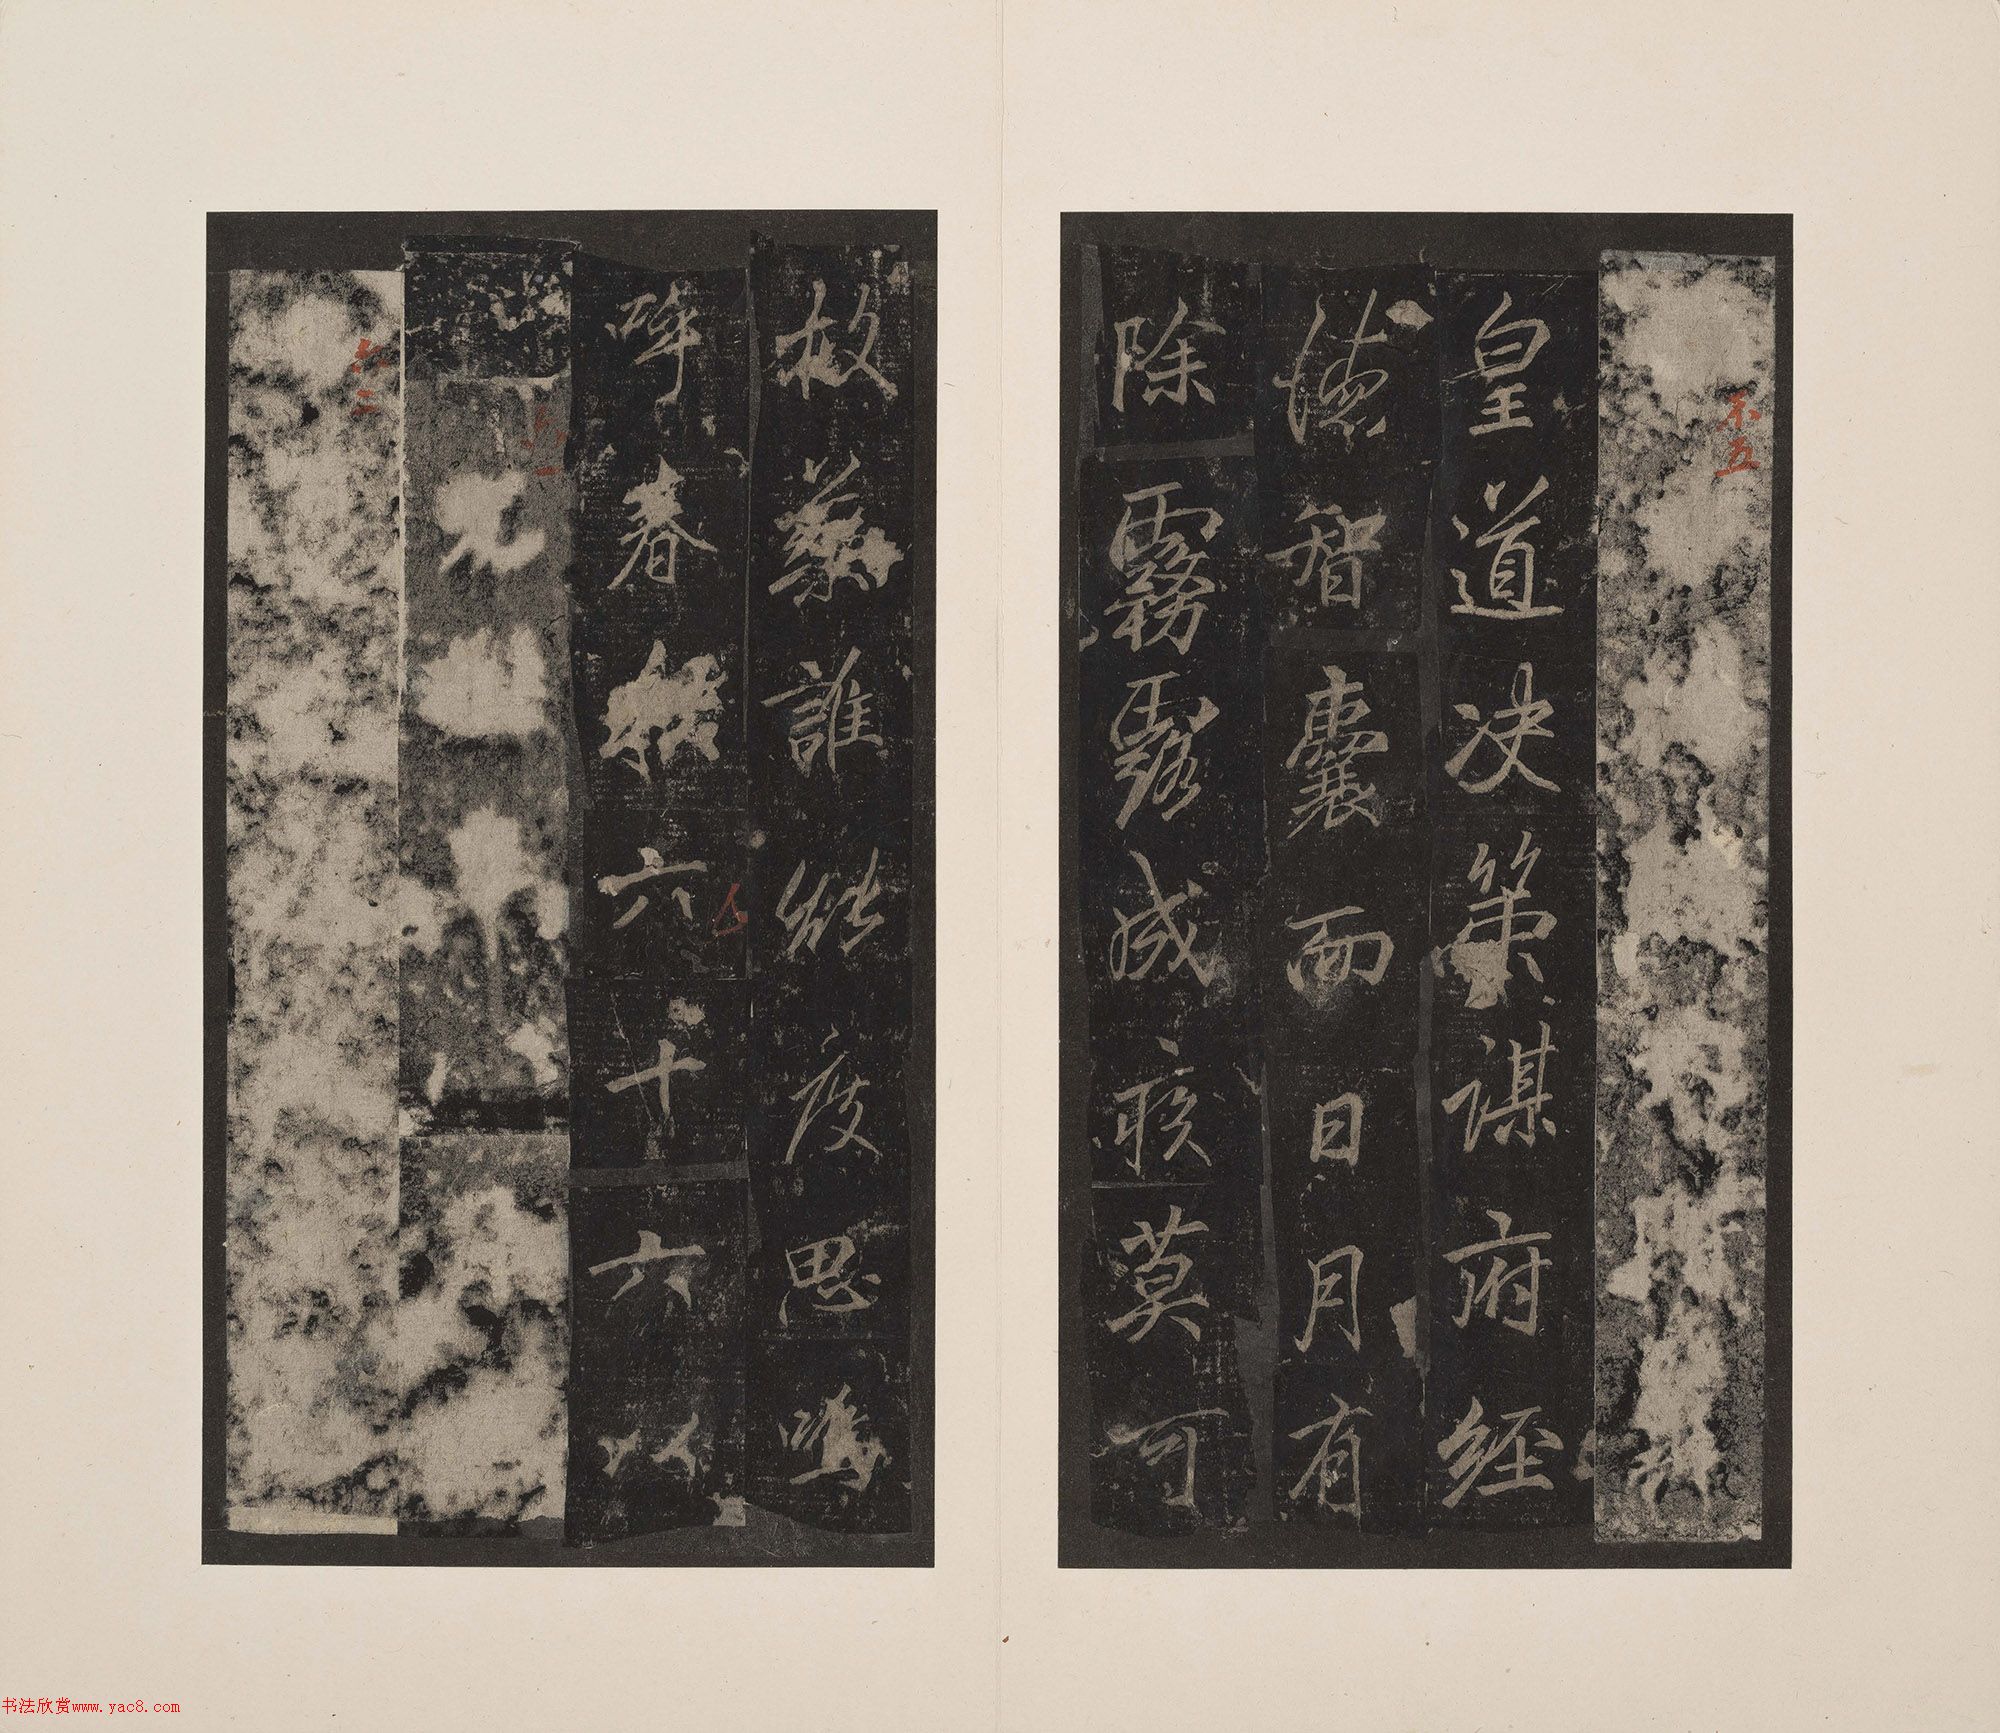 皇道决策謀府經
德智囊而日月有
除霧露成疾莫可
救藥誰能度思嗚
呼春秋六十六以
书法欣赏www.yac8.com